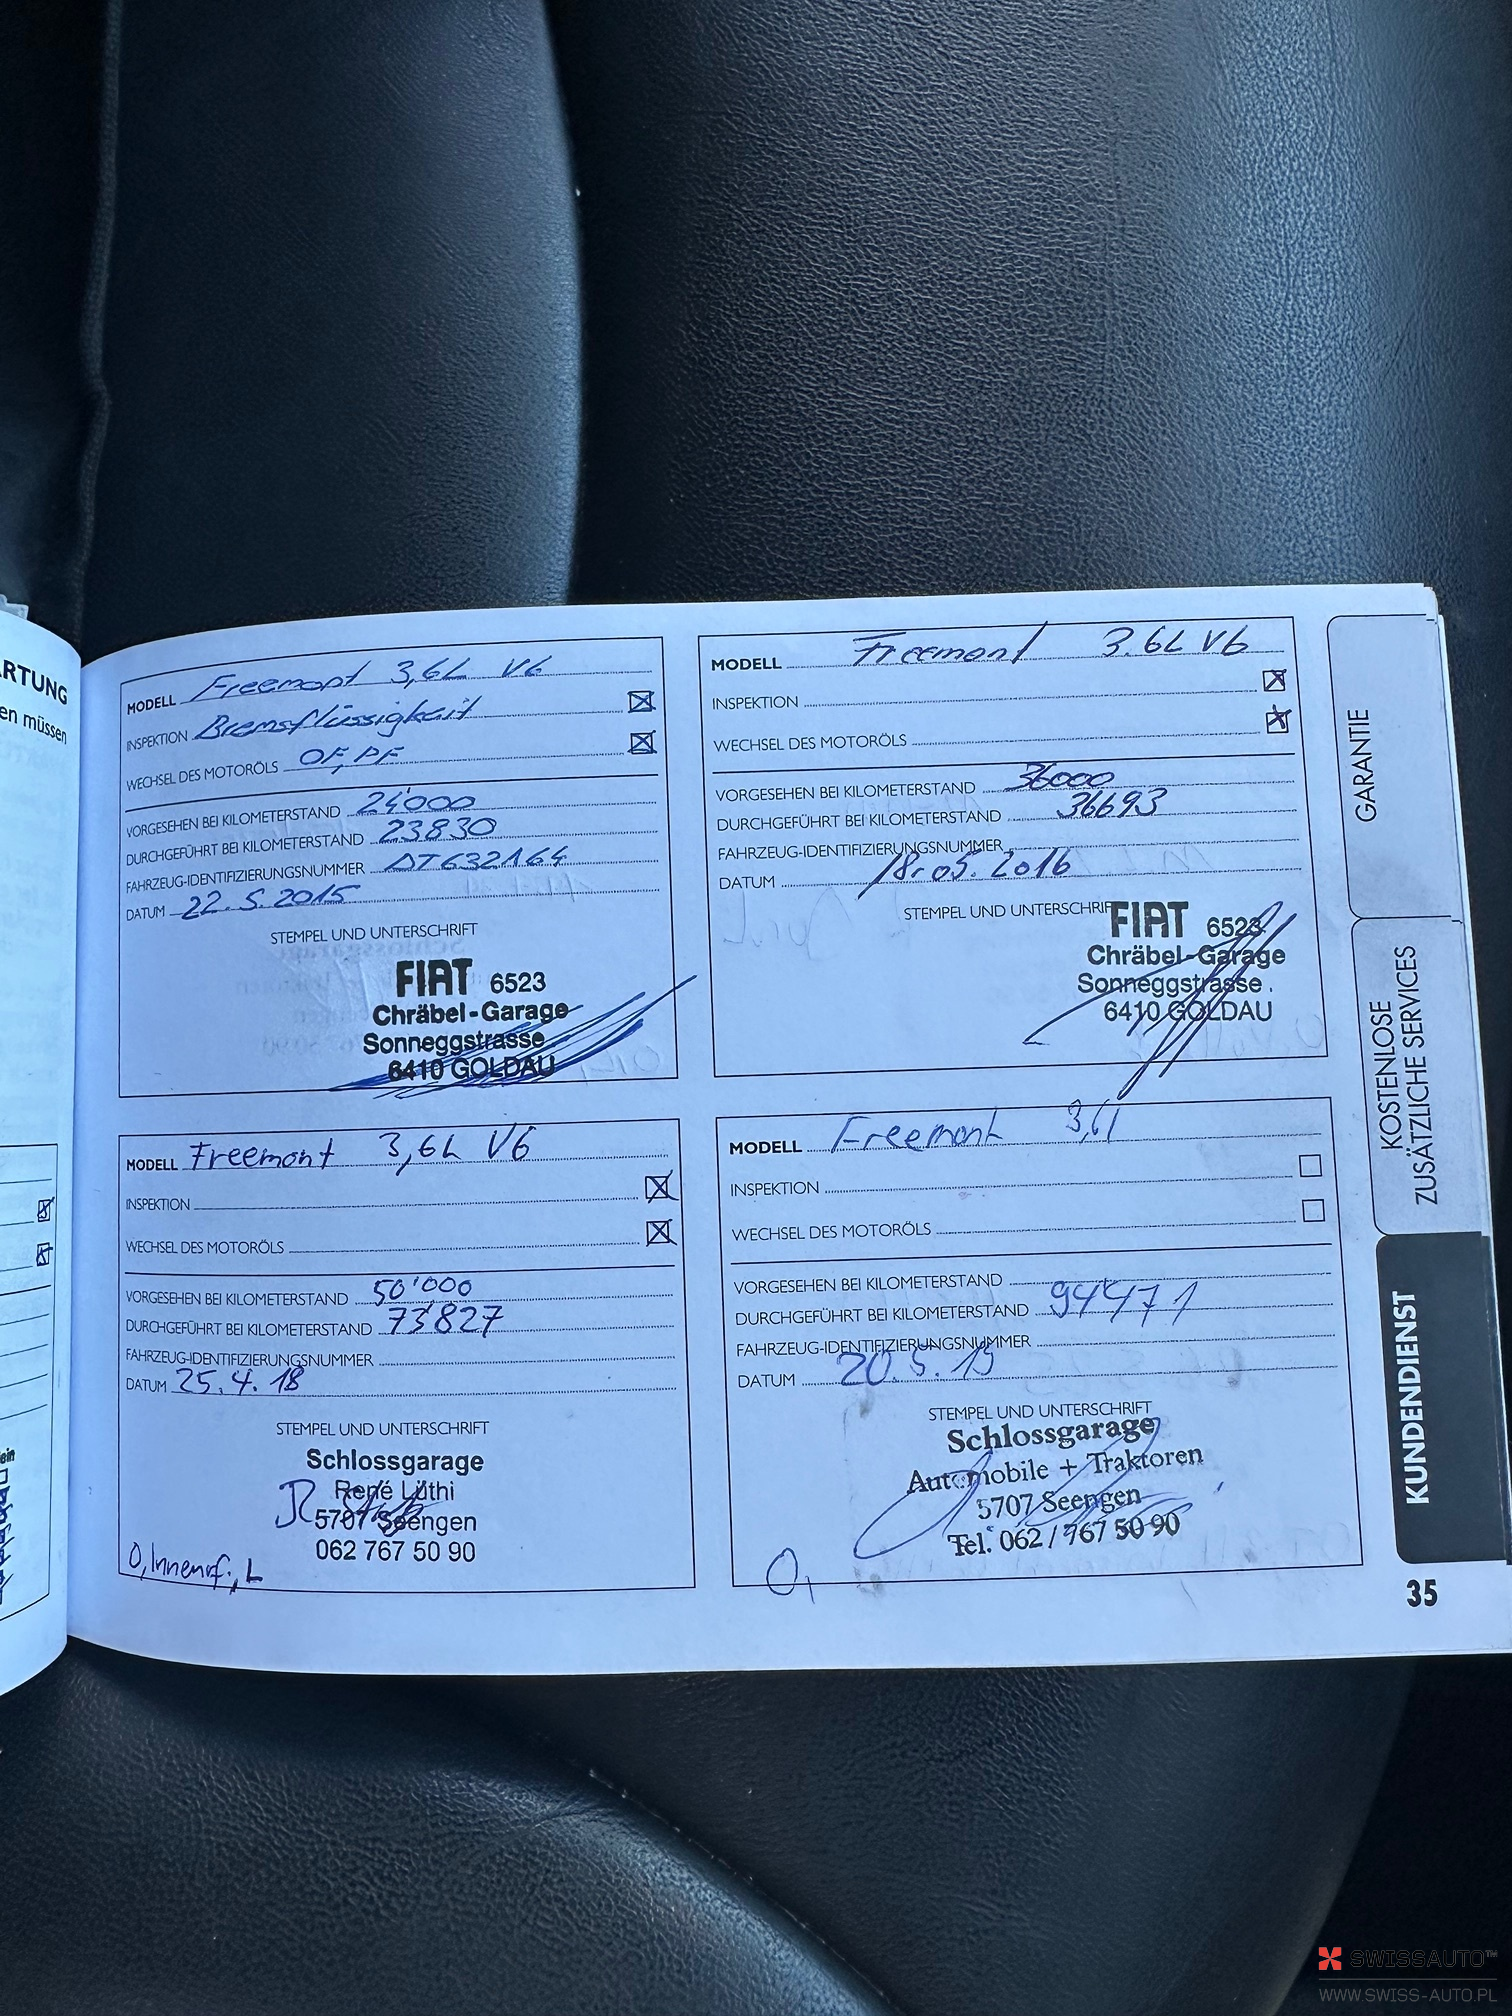 ARTUNG
en müssen
MODELL Freemont 3,6L V6
INSPEKTION Bremsflüssigkeit
WECHSEL DES MOTORÖLS OF, PF
VORGESEHEN BEI KILOMETERSTAND 24'000
DURCHGEFÜHRT BEI KILOMETERSTAND 23830
FAHRZEUG-IDENTIFIZIERUNGSNUMMER DT632164
DATUM 22.5.2015
STEMPEL UND UNTERSCHRIFT
FIAT 6523
Chräbel-Garage
Sonneggstrasse
6410 GOLDAU
MODELL Freemont 3.6L V6
INSPEKTION
WECHSEL DES MOTORÖLS
VORGESEHEN BEI KILOMETERSTAND 36000
DURCHGEFÜHRT BEI KILOMETERSTAND 36693
FAHRZEUG-IDENTIFIZIERUNGSNUMMER
DATUM 18.05.2016
STEMPEL UND UNTERSCHRIF
FIAT 6523
Chräbel-Garage
Sonneggstrasse
6410 GOLDAU
MODELL Freemont 3,6L V6
INSPEKTION
WECHSEL DES MOTORÖLS
VORGESEHEN BEI KILOMETERSTAND 50'000
DURCHGEFÜHRT BEI KILOMETERSTAND 73'827
FAHRZEUG-IDENTIFIZIERUNGSNUMMER
DATUM 25.4.18
STEMPEL UND UNTERSCHRIFT
Schlossgarage
René Lüthi
5707 Seengen
062 767 50 90
O, Innenrf., L
MODELL Freemont 3,6l
INSPEKTION
WECHSEL DES MOTORÖLS
VORGESEHEN BEI KILOMETERSTAND
DURCHGEFÜHRT BEI KILOMETERSTAND 94471
FAHRZEUG-IDENTIFIZIERUNGSNUMMER
DATUM 20.5.19
STEMPEL UND UNTERSCHRIFT
Schlossgarage
Automobile + Traktoren
5707 Seengen
Tel. 062 / 767 50 90
O,
GARANTIE
KOSTENLOSE
ZUSÄTZLICHE SERVICES
KUNDENDIENST
35
SWISSAUTO™
WWW.SWISS-AUTO.PL